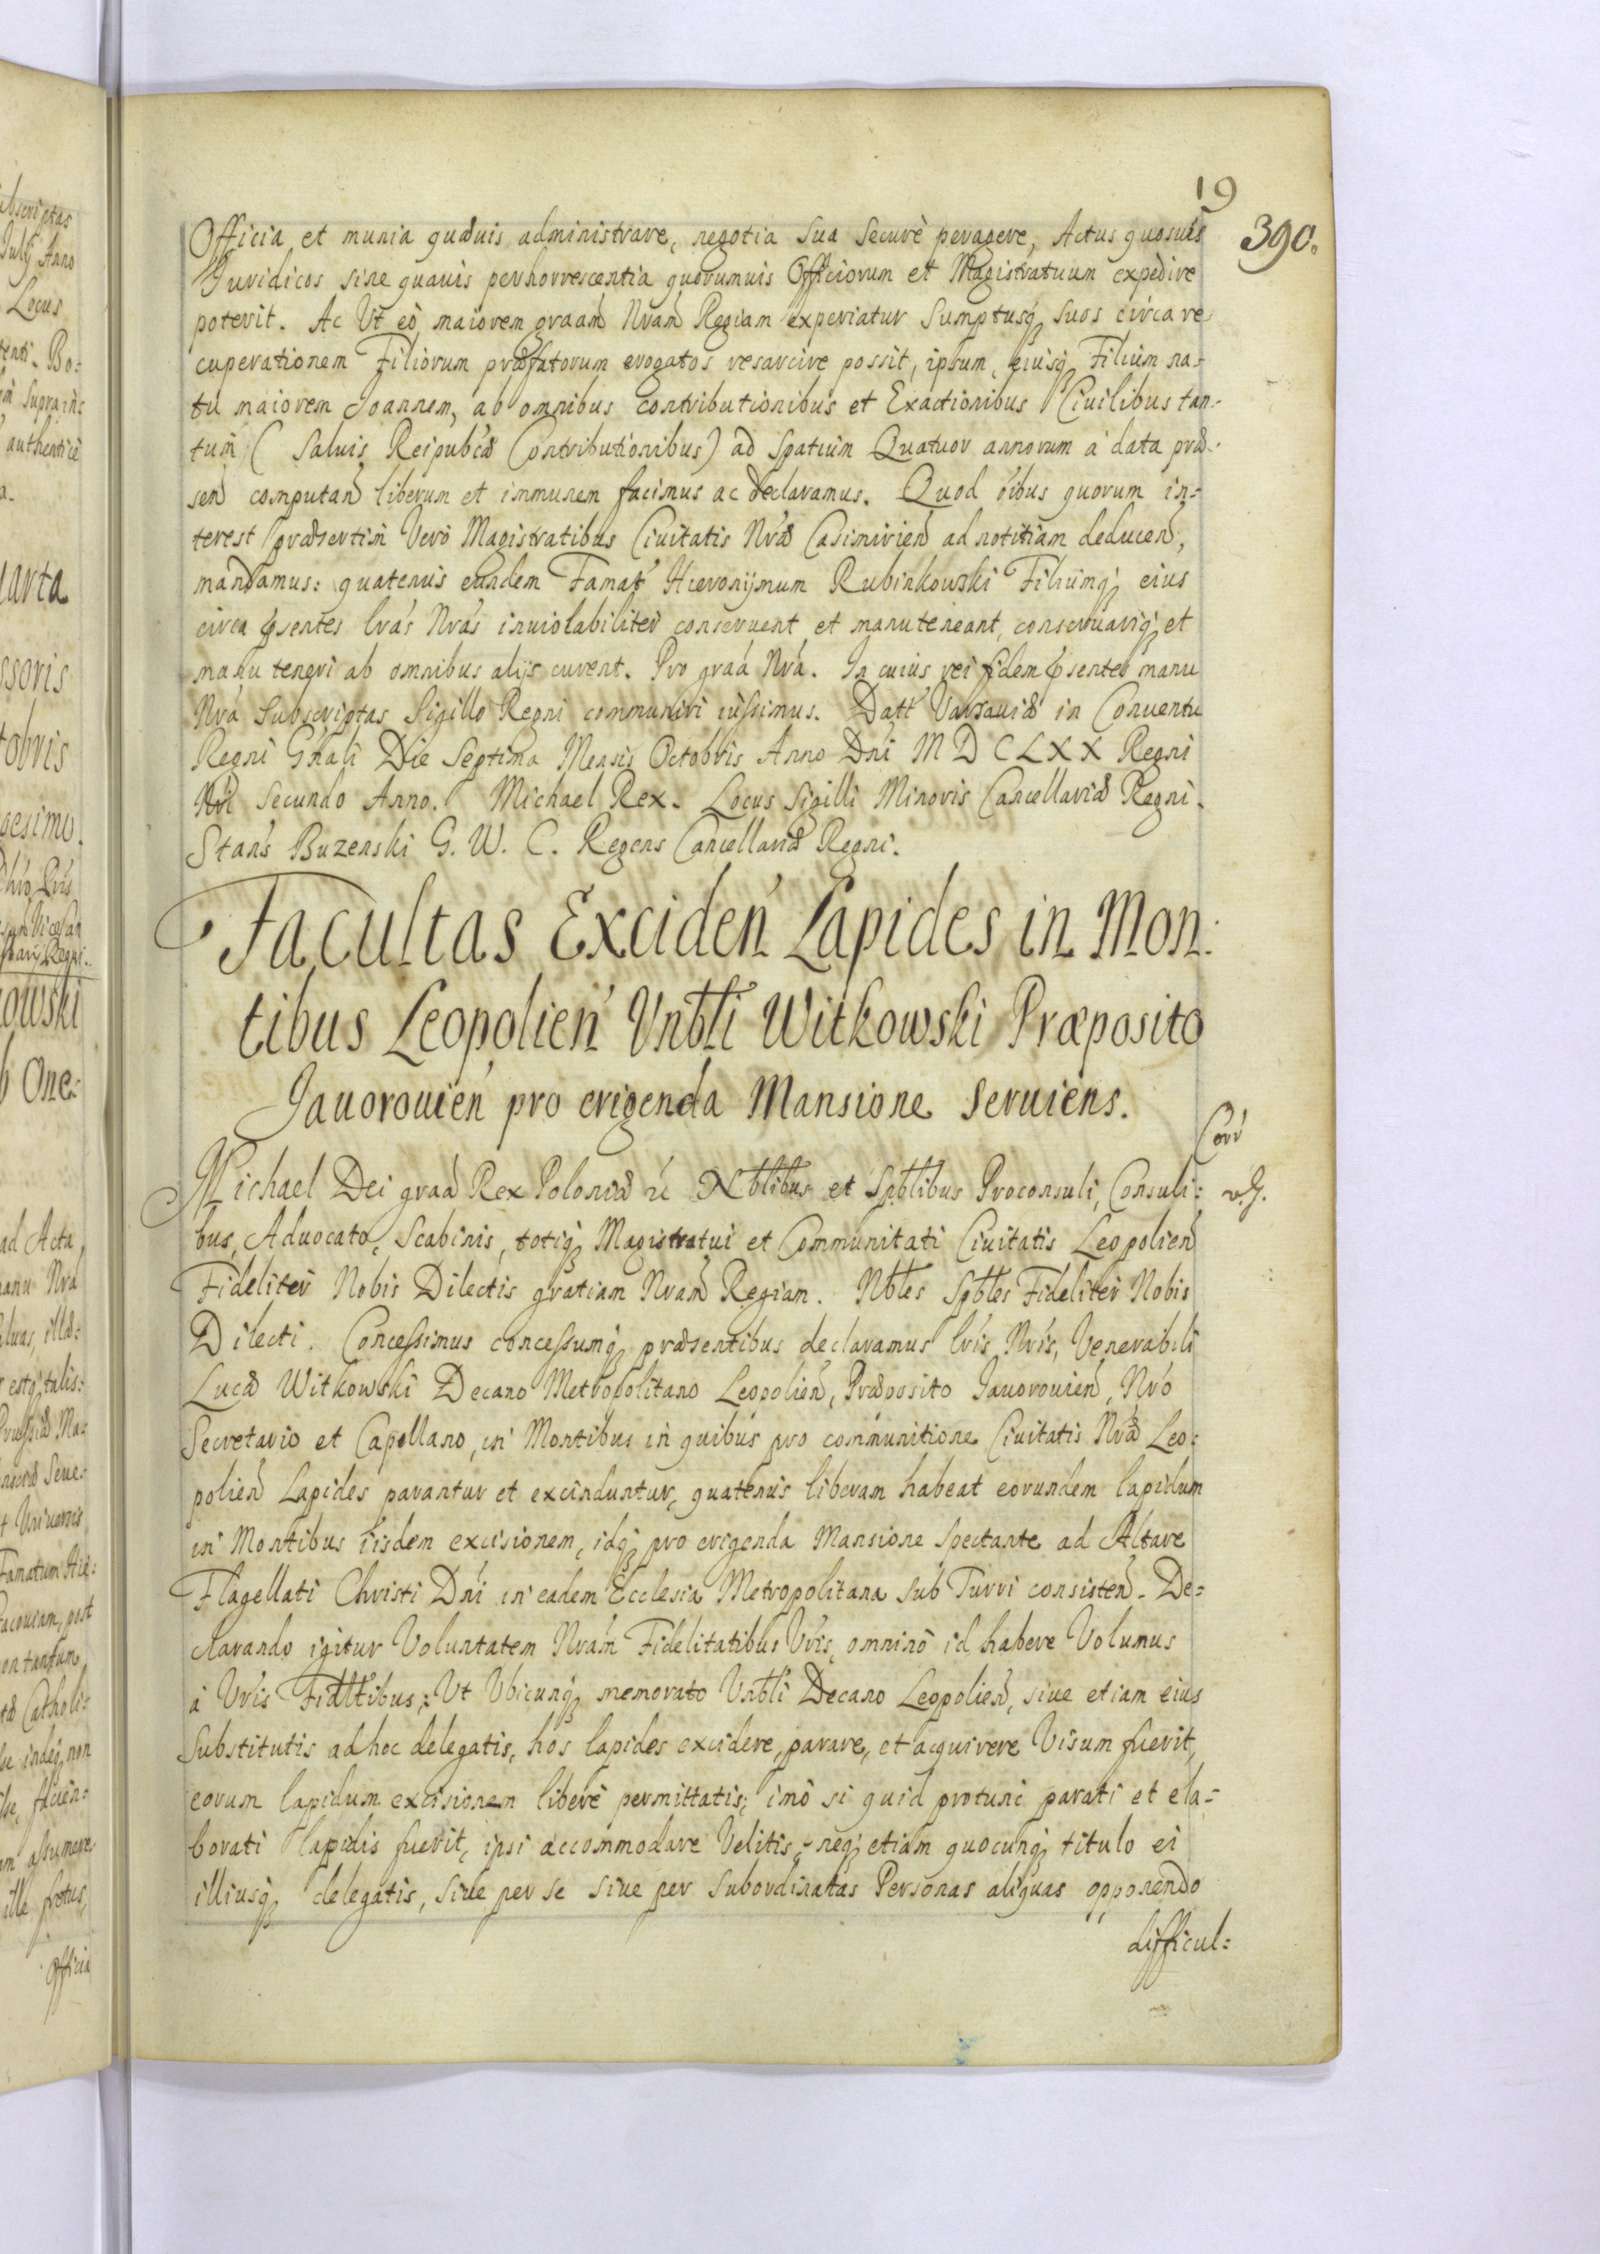 19
390.
Officia et munia quævis administrare, negotia sua securè peragere, Actus quosuis
Iuridicos sine quauis perhorrescentia quorumuis Officiorum et Magistratuum expedire
poterit. Ac Vt eò maiorem graãm Nrãm Regiam experiatur Sumptusq3 suos circa re
cuperationem Filiorum præfatorum erogatos resarcire possit, ipsum, eiusq3 Filium na-
tu maiorem Joannem, ab omnibus contributionibus et Exactionibus Ciuilibus tan-
tum (Saluis Reipubcæ Contributionibus) ad Spatium Quatuor annorum à data præ-
sen̄ computan̄ liberum et immunem facimus ac declaramus. Quod õibus quorum in-
terest præsertim Verò Magistratibus Ciuitatis Nræ Casimirien̄ ad notitiam deducen̄,
mandamus: quatenus eundem Famat̄ Hieronymum Rubinkowski Filiumq3 eius
circa p̄sentes lrãs Nrãs inuiolabiliter conseruent et manuteneant, conseruariq3 et
manu teneri ab omnibus alijs curent. Pro graã Nrã. In cuius rei fidem p̄sentes manu
Nrã Subscriptas Sigillo Regni communiri iussimus. Datt Varsauiæ in Conuentu
Regni Gñali Die Septima Mensis Octobris Anno Dñi M D C L X X Regni
Nri Secundo Anno. Michael Rex. Locus Sigilli Minoris Cancellariæ Regni.
Stan̄s Buzenski G. W. C. Regens Cancellariæ Regni.
Facultas Exciden̄ Lapides in Mon:
tibus Leopolien̄ Vnbli Witkowski Præposito
Jauorouien̄ pro erigenda Mansione seruiens.
Corr
Michael Dei graã Rex Poloniæ &c Nbtlibus et Spbtlibus Proconsuli, Consuli:
bus, Aduocato, Scabinis, totiq3 Magistratui et Communitati Ciuitatis Leopolien̄
Fideliter Nobis Dilectis gratiam Nrãm Regiam. Nbtles Spbtles Fideliter Nobis
Dilecti. Concessimus concessumq3 præsentibus declaramus lrĩs Nrĩs, Venerabili
Lucæ Witkowski Decano Metropolitano Leopolien̄, Præposito Jauorouien̄, Nrõ
Secretario et Capellano, in Montibus in quibus pro communitione Ciuitatis Nræ Leo:
polien̄ Lapides parantur et exscinduntur, quatenus liberam habeat eorundem lapidum
in Montibus iisdem excisionem, idq3 pro erigenda Mansione spectante ad Altare
Flagellati Christi Dñi in eadem Ecclesia Metropolitana sub Turri consisten̄. De=
clarando igitur Voluntatem Nrãm Fidelitatibus Vrĩs, omninò id habere Volumus
à Vrĩs Fidlttibus: Vt Vbicunq3 memorato Vnbli Decano Leopolien̄, siue etiam eius
Substitutis ad hoc delegatis, hos lapides excidere, parare, et acquirere Visum fuerit,
eorum lapidum excisionem liberè permittatis; imò si quid protunc parati et ela=
borati lapidis fuerit, ipsi accommodare Velitis, neq3 etiam quocunq3 titulo ei
illiusq3 delegatis, siue per se siue per subordinatas Personas aliquas opponendo
difficul=